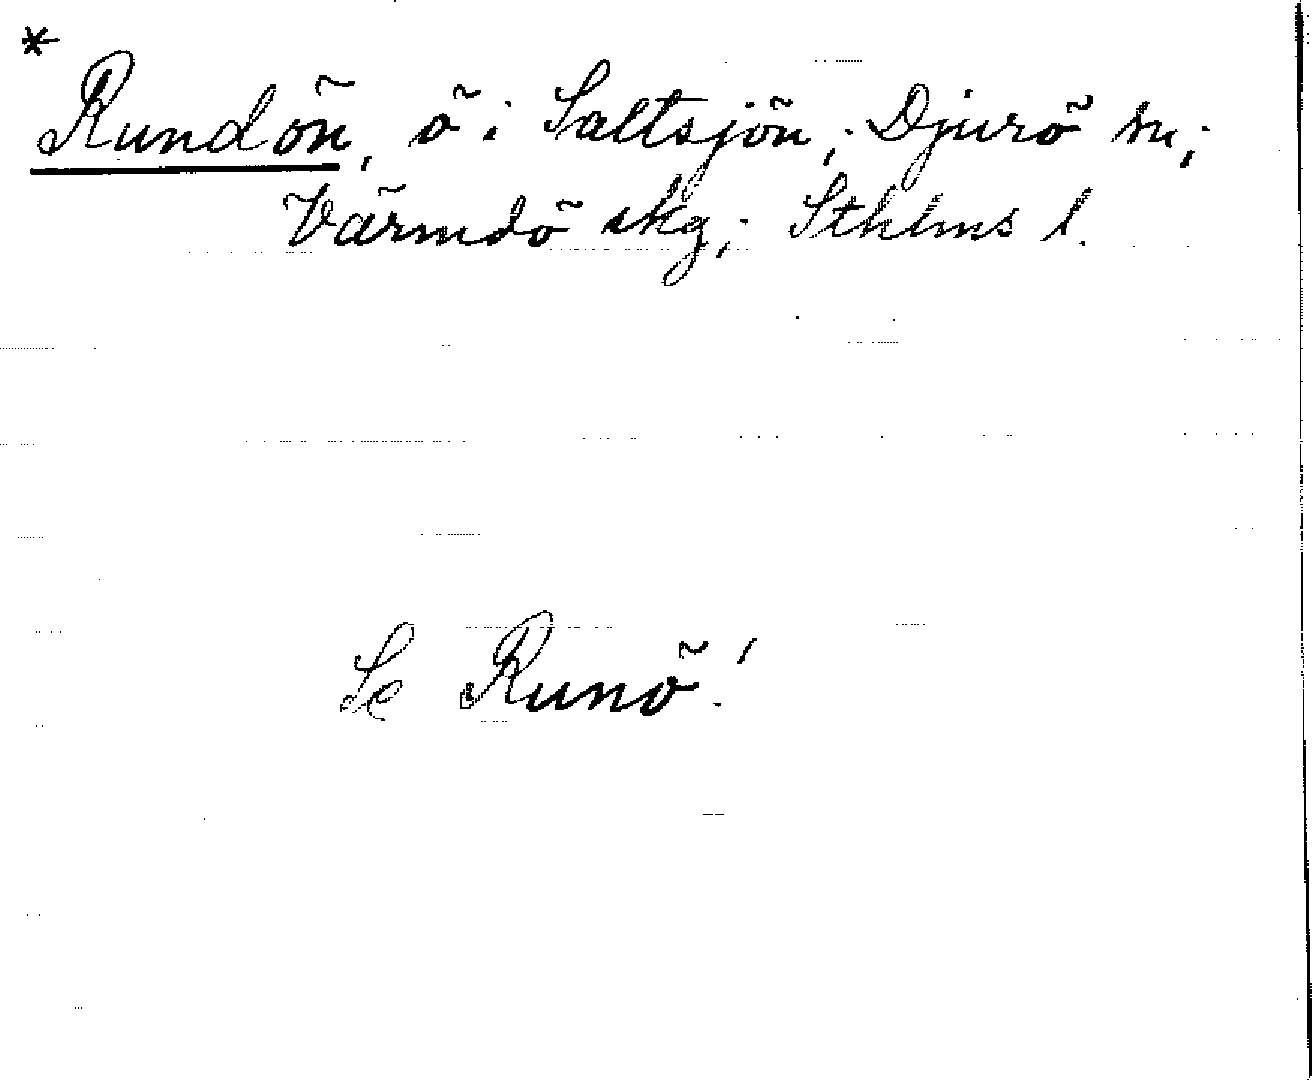 *
Rundön, ö i Saltsjön; Djurö sn;
Värmdö skg; Sthlms l.
Se Runö!